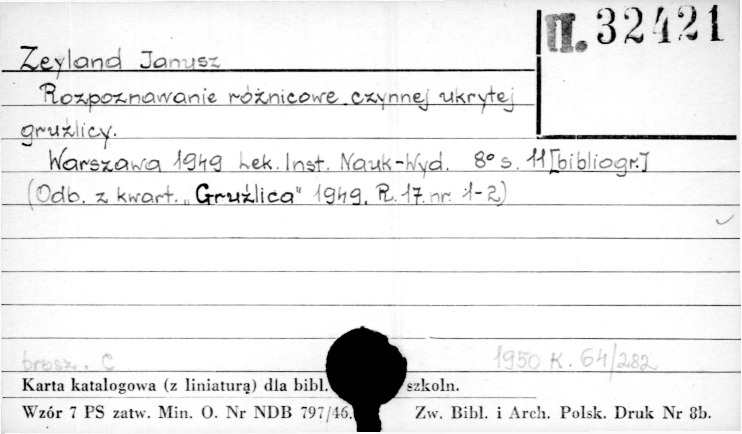 II. 32421
Zeyland Janusz
Rozpoznawanie różnicowe czynnej ukrytej
gruźlicy.
Warszawa 1949 Lek. Inst. Nauk-Wyd. 8° s. 11 [bibliogr.]
(Odb. z kwart. „Gruźlica" 1949, R. 17. nr. 1-2)
brosz. C 1950 K. 64/282
Karta katalogowa (z liniaturą) dla bibl. szkoln.
Wzór 7 PS zatw. Min. O. Nr NDB 797/46. Zw. Bibl. i Arch. Polsk. Druk Nr 8b.